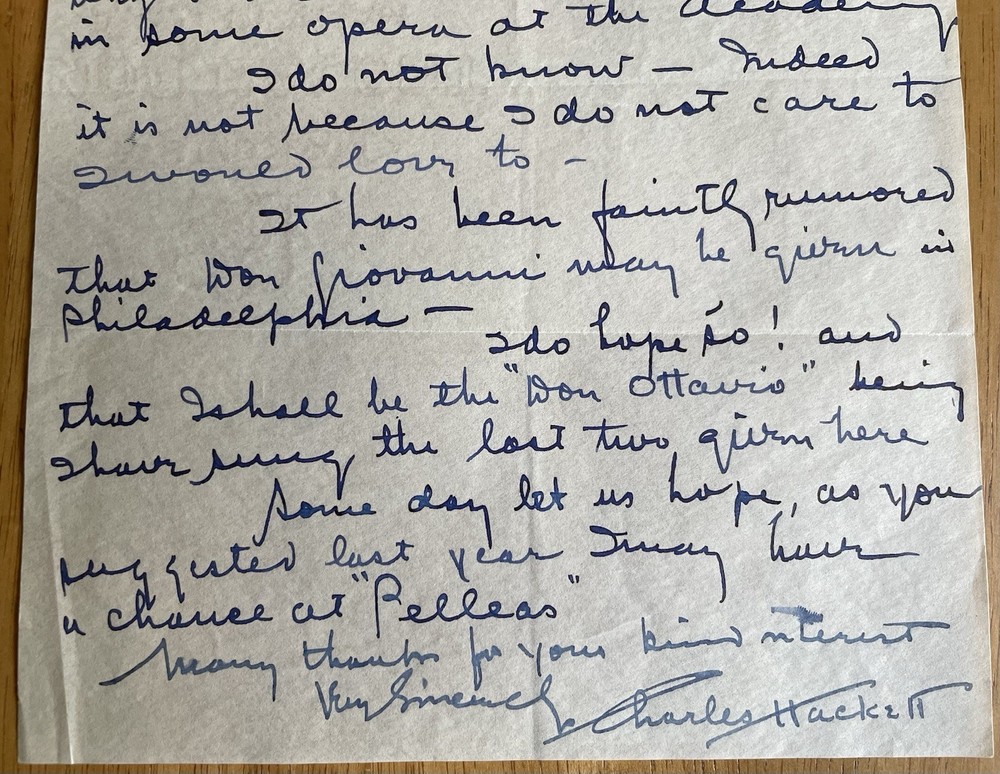 in some opera at the Academy
I do not know — Indeed
it is not because I do not care to
I would love to -
It has been faintly rumored
that Don Giovanni may be given in
Philadelphia —
I do hope so! and
that I shall be the "Don Ottavio" being
I have sung the last two given here
Some day let us hope, as you
suggested last year I may have
a chance at "Pelleas"
Many thanks for your kind interest
Very Sincerely
Charles Hackett